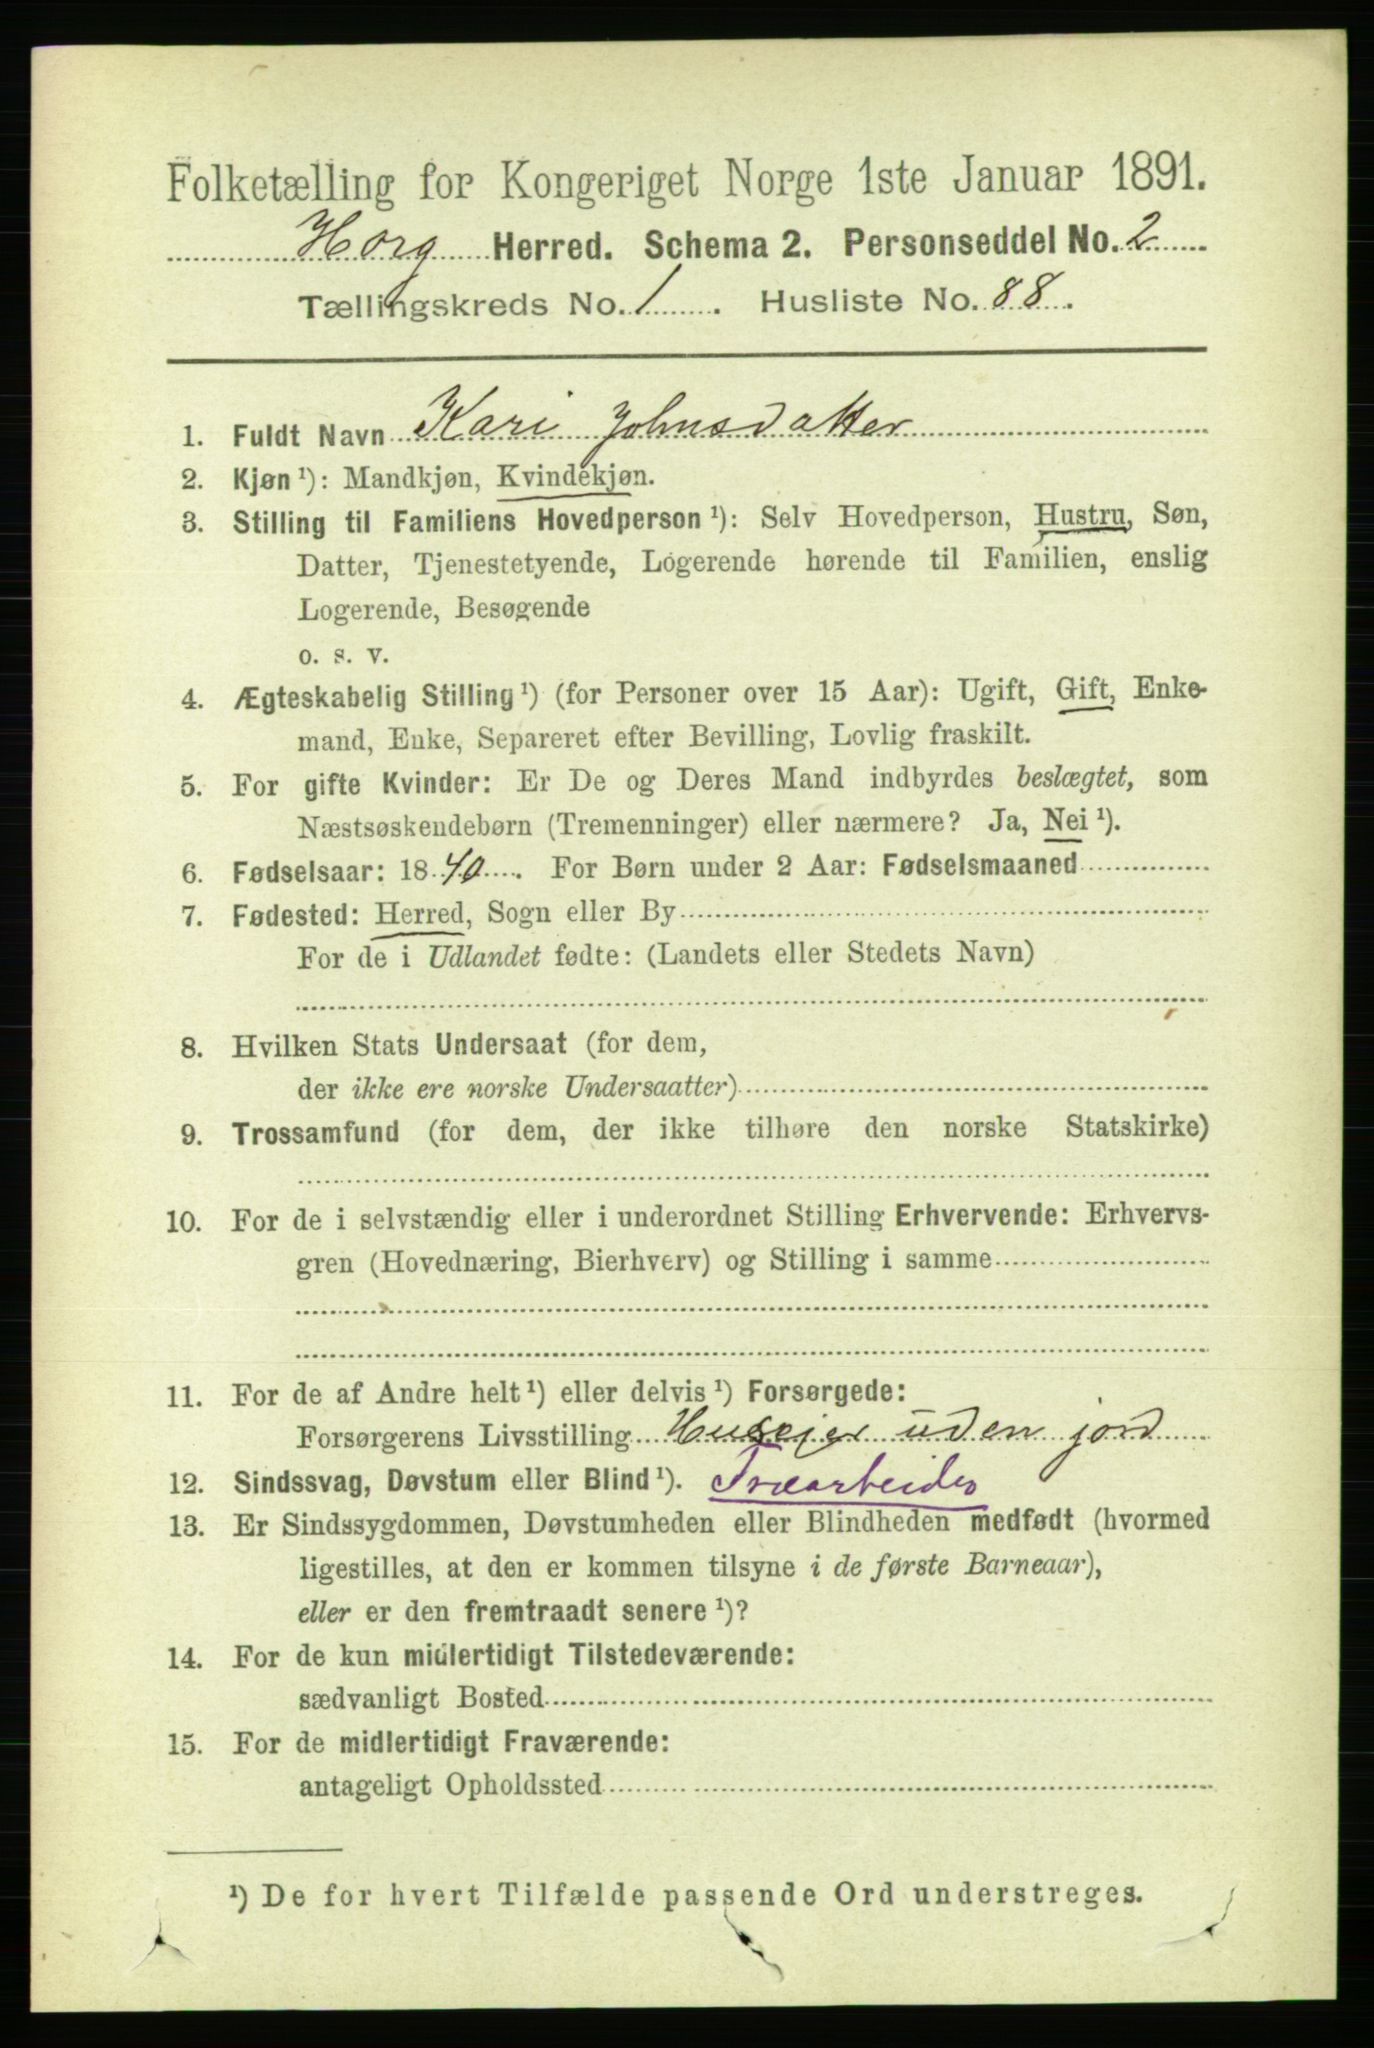 Folketælling for Kongeriget Norge 1ste Januar 1891.
Horg Herred. Schema 2. Personseddel No. 2
Tællingskreds No. 1. Husliste No. 88.
1. Fuldt Navn Kari Johnsdatter
2. Kjøn ¹): Mandkjøn, Kvindekjøn.
3. Stilling til Familiens Hovedperson ¹): Selv Hovedperson, Hustru, Søn,
Datter, Tjenestetyende, Logerende hørende til Familien, enslig
Logerende, Besøgende
o. s. v.
4. Ægteskabelig Stilling ¹) (for Personer over 15 Aar): Ugift, Gift, Enke-
mand, Enke, Separeret efter Bevilling, Lovlig fraskilt.
5. For gifte Kvinder: Er De og Deres Mand indbyrdes beslægtet, som
Næstsøskendebørn (Tremenninger) eller nærmere? Ja, Nei ¹).
6. Fødselsaar: 1840. For Børn under 2 Aar: Fødselsmaaned
7. Fødested: Herred, Sogn eller By
For de i Udlandet fødte: (Landets eller Stedets Navn)
8. Hvilken Stats Undersaat (for dem,
der ikke ere norske Undersaatter)
9. Trossamfund (for dem, der ikke tilhøre den norske Statskirke)
10. For de i selvstændig eller i underordnet Stilling Erhvervende: Erhvervs-
gren (Hovednæring, Bierhverv) og Stilling i samme
11. For de af Andre helt ¹) eller delvis ¹) Forsørgede:
Forsørgerens Livsstilling Huseier uden jord
12. Sindssvag, Døvstum eller Blind ¹). Træarbeider
13. Er Sindssygdommen, Døvstumheden eller Blindheden medfødt (hvormed
ligestilles, at den er kommen tilsyne i de første Barneaar),
eller er den fremtraadt senere ¹)?
14. For de kun midlertidigt Tilstedeværende:
sædvanligt Bosted
15. For de midlertidigt Fraværende:
antageligt Opholdssted
¹) De for hvert Tilfælde passende Ord understreges.